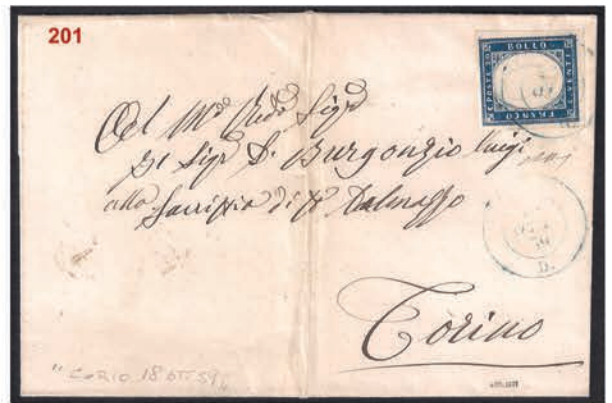 201
BOLLO
C. POSTE 20
C. VENTI
FRANCO
Al M.to Rev.do Sig.r
Il Sig.r D. Burgonzio Luigi
alla Sacristia di S. Dalmazzo
D.
Torino
"CORIO 18 OTT 59"